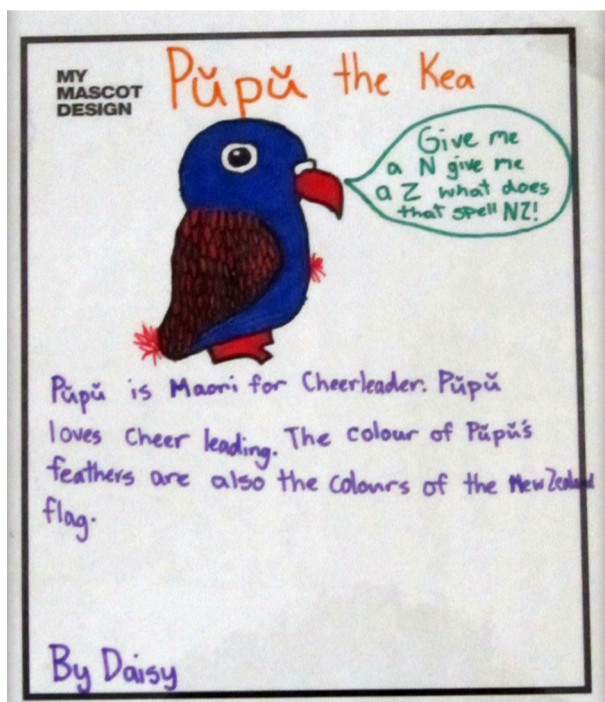 MY
MASCOT
DESIGN
Pŭpŭ the Kea
Give me
a N give me
a Z what does
that spell NZ!
Pŭpŭ is Maori for Cheerleader. Pŭpŭ
loves cheer leading. The colour of Pŭpŭ's
feathers are also the colours of the New Zealand
flag.
By Daisy